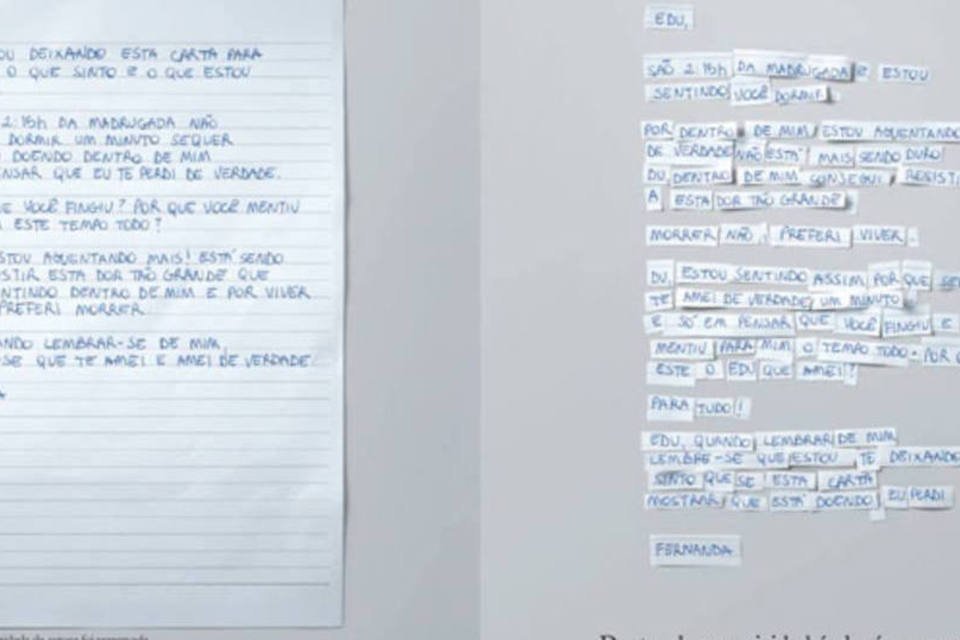 OU DEIXANDO ESTA CARTA PARA
O QUE SINTO E O QUE ESTOU
2:15h DA MADRUGADA NÃO
DORMIR UM MINUTO SEQUER
DOENDO DENTRO DE MIM
ENSAR QUE EU TE PERDI DE VERDADE.
E VOCÊ FINGIU? POR QUE VOCÊ MENTIU
ESTE TEMPO TODO?
STOU AGUENTANDO MAIS! ESTÁ SENDO
ISTIR ESTA DOR TÃO GRANDE QUE
NTINDO DENTRO DE MIM E POR VIVER
PREFERI MORRER
ANDO LEMBRAR-SE DE MIM,
-SE QUE TE AMEI E AMEI DE VERDADE.
A
EDU,
SÃO 2:15h DA MADRUGADA E ESTOU
SENTINDO VOCÊ DORMIR.
POR DENTRO DE MIM ESTOU AGUENTANDO
DE VERDADE NÃO ESTÁ MAIS SENDO DURO
DU, DENTRO DE MIM CONSEGUI RESISTI
A ESTA DOR TÃO GRANDE.
MORRER NÃO, PREFERI VIVER.
DU, ESTOU SENTINDO ASSIM, POR QUE SE
TE AMEI DE VERDADE UM MINUTO
E SÓ EM PENSAR QUE VOCÊ FINGIU E
MENTIU PARA MIM O TEMPO TODO. POR Q
ESTE O EDU QUE AMEI?
PARA TUDO!
EDU, QUANDO LEMBRAR DE MIM
LEMBRE-SE QUE ESTOU TE DEIXANDO
SINTO QUE SE ESTA CARTA
MOSTRAR QUE ESTÁ DOENDO, EU PERDI
FERNANDA